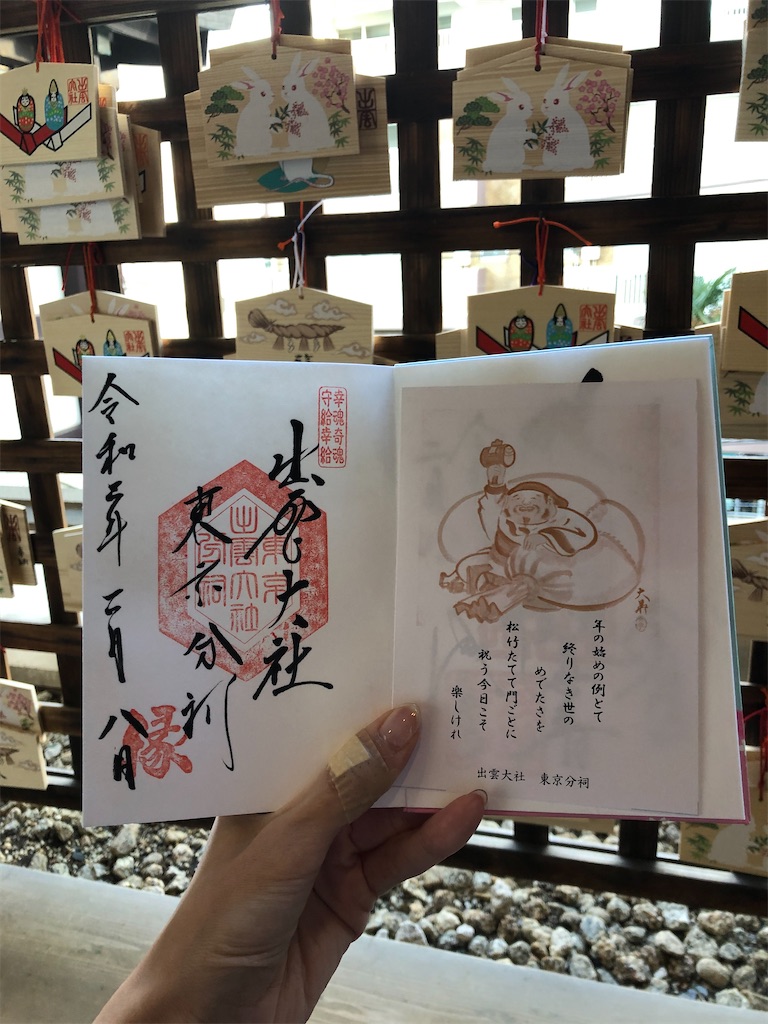 幸魂奇魂
守給幸給
出雲大社
東京分祠
東京分祠
出雲大社
令和二年 二月 八日
縁
年の始めの例とて
終りなき世の
めでたさを
松竹たてて門ごとに
祝う今日こそ
楽しけれ
出雲大社 東京分祠